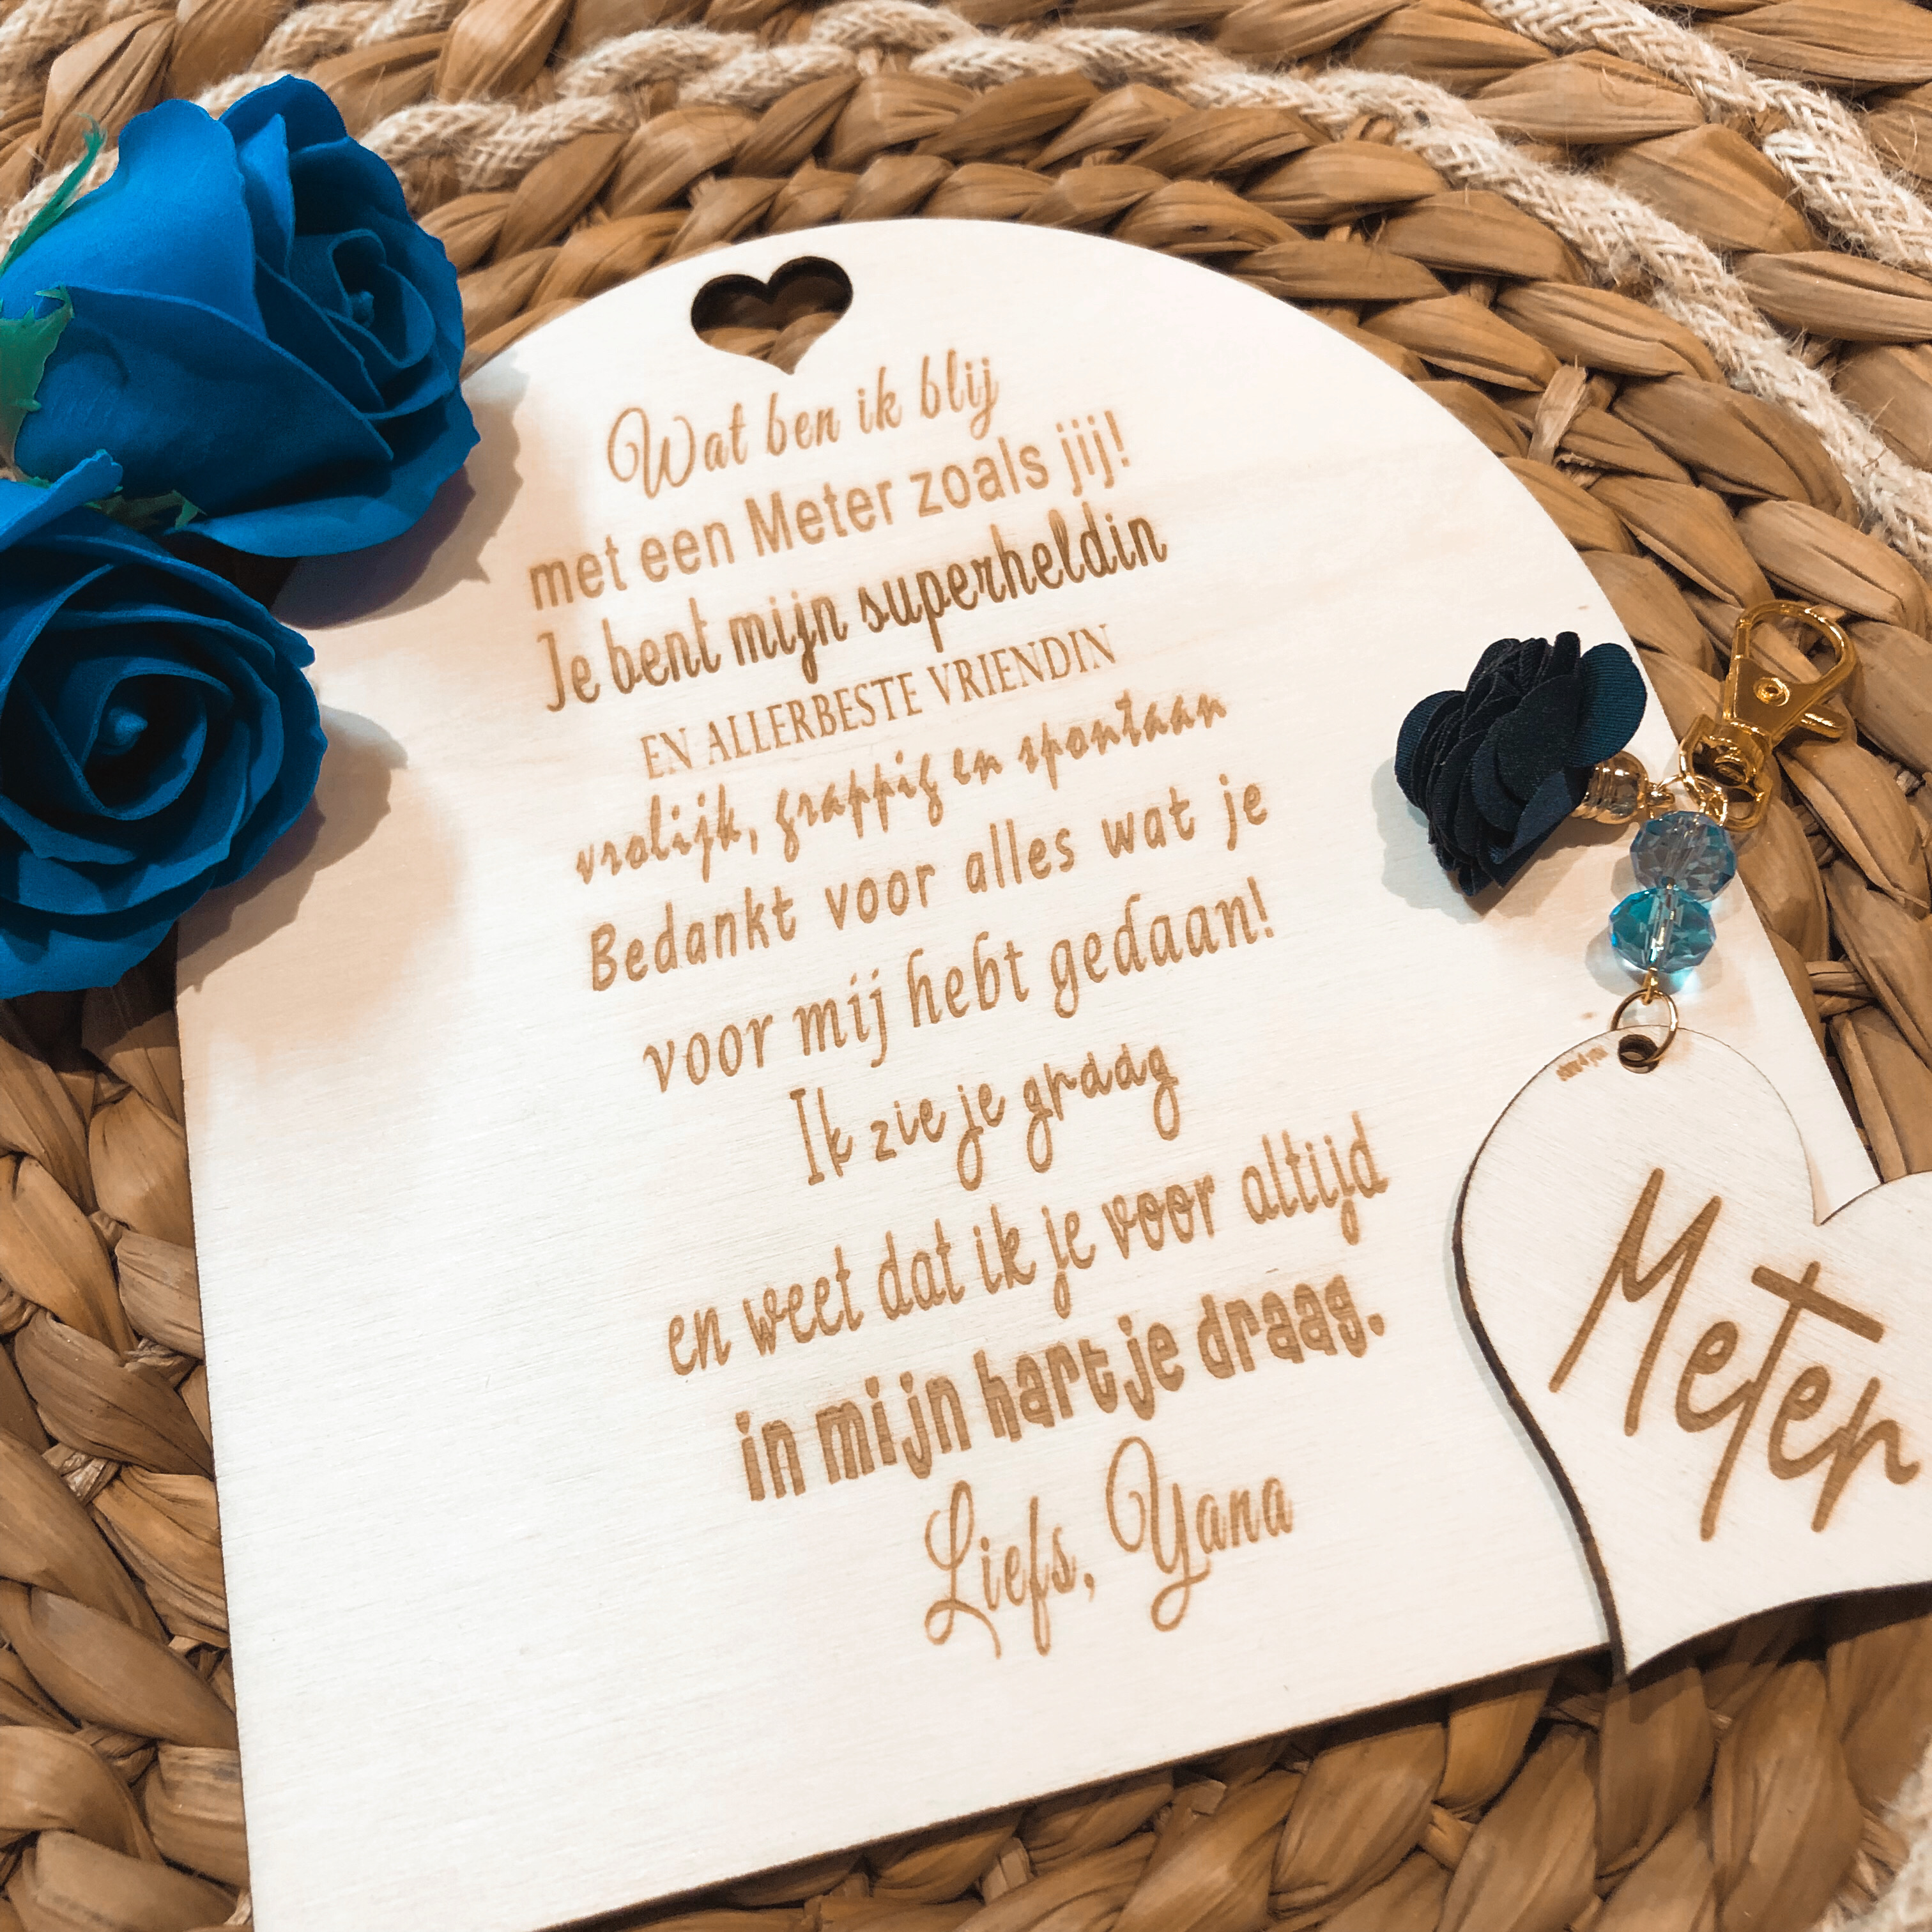 Wat ben ik blij
met een Meter zoals jij!
Je bent mijn superheldin
EN ALLERBESTE VRIENDIN
vrolijk, grappig en spontaan
Bedankt voor alles wat je
voor mij hebt gedaan!
Ik zie je graag
en weet dat ik je voor altijd
in mijn hartje draag.
Liefs, Yana
Meter